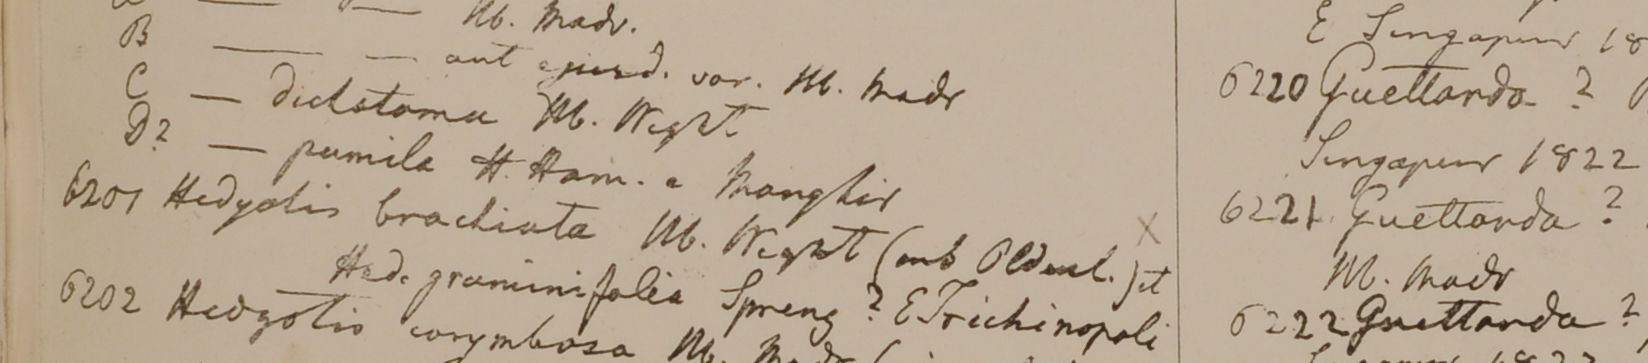 Hb. Madr.
B — — aut ejusd. var. Hb. Madr
C — dichotoma Hb. Wight
D? — pumila H. Ham. e Monghir
6201 Hedyotis brachiata Hb. Wight (sub Oldenl.) et
Hed. graminifolia Spreng? E Trichinopoli
6202 Hedyotis corymbosa Hb. Madr
E Singapur 18
6220 Guettarda?
Singapur 1822
6221 Guettarda?
Hb. Madr
6222 Guettarda?